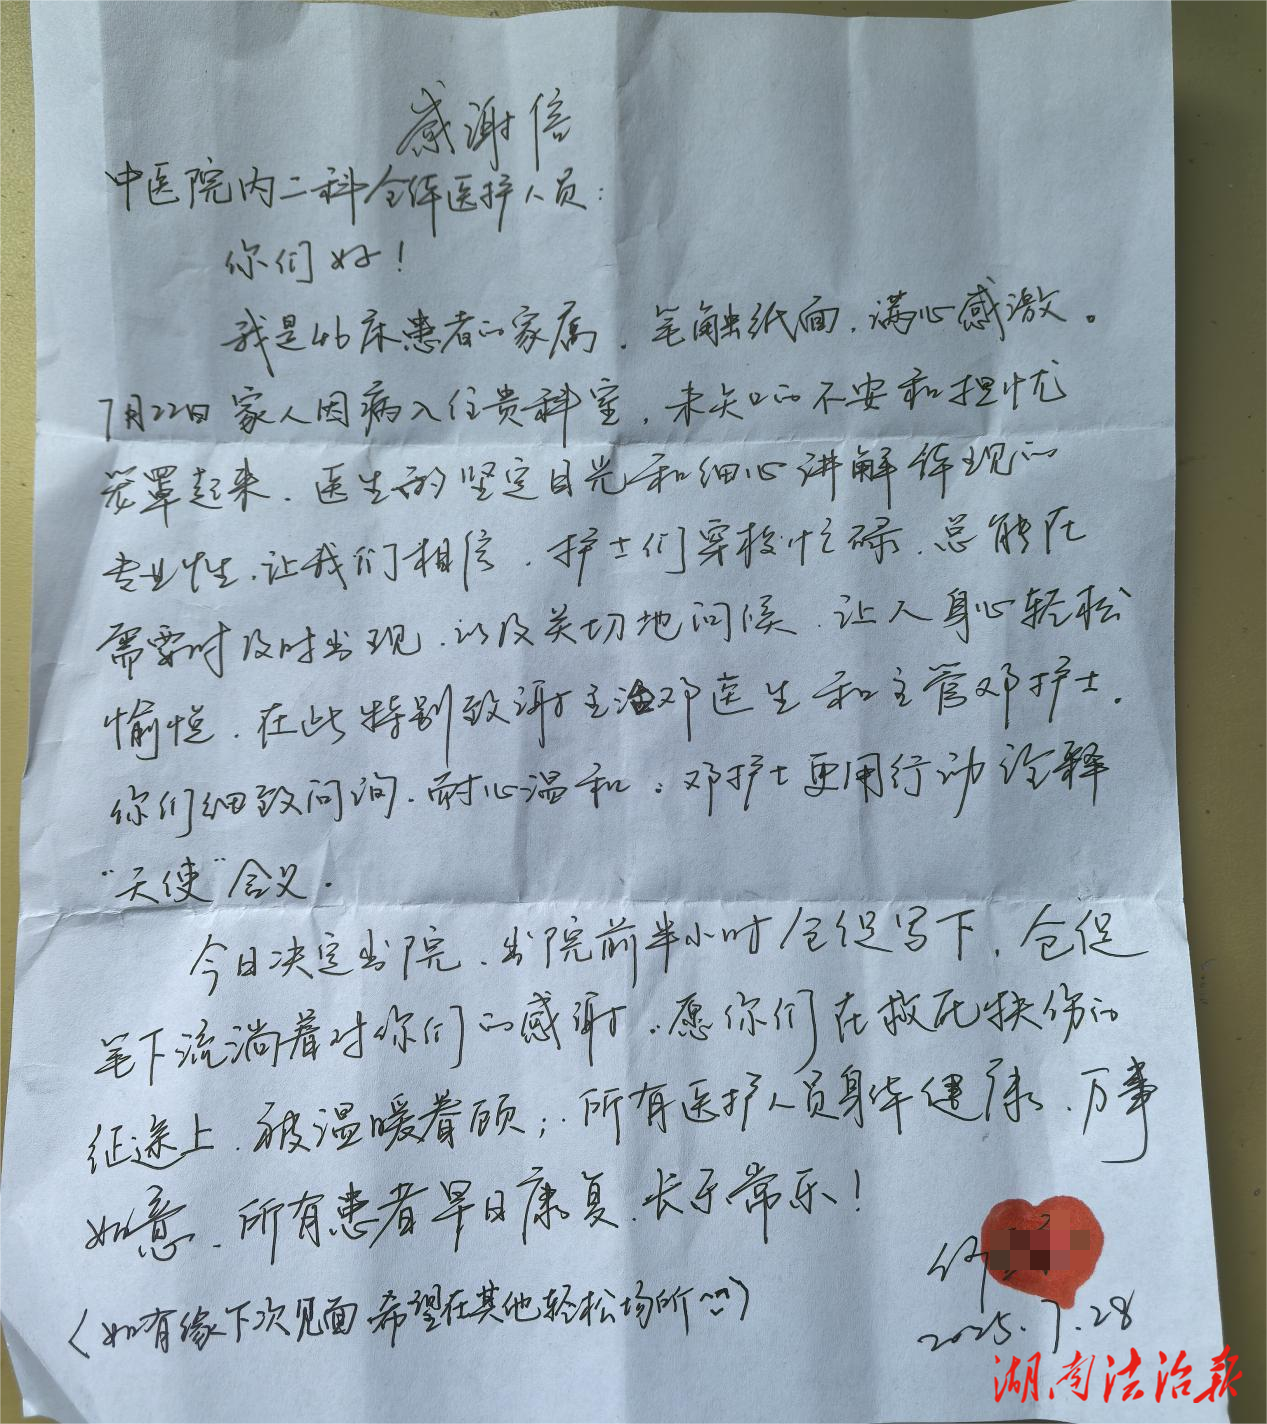 感谢信
中医院内二科全体医护人员：
你们好！
我是46床患者的家属，笔触纸面，满心感激。
7月22日家人因病入住贵科室，未知的不安和担忧
笼罩起来，医生的坚定目光和细心讲解体现的
专业性，让我们相信，护士们穿梭忙碌，总能在
需要时及时出现，以及关切地问候，让人身心轻松
愉悦，在此特别致谢主治邓医生和主管邓护士，
你们细致问询，耐心温和；邓护士更用行动诠释
“天使”含义。
今日决定出院，出院前半小时仓促写下，仓促
笔下流淌着对你们的感谢，愿你们在救死扶伤的
征途上，被温暖眷顾；所有医护人员身体健康、万事
如意，所有患者早日康复，长乐常乐！
（如有缘下次见面 希望在其他轻松场所）
2025.7.28
湖南法治报